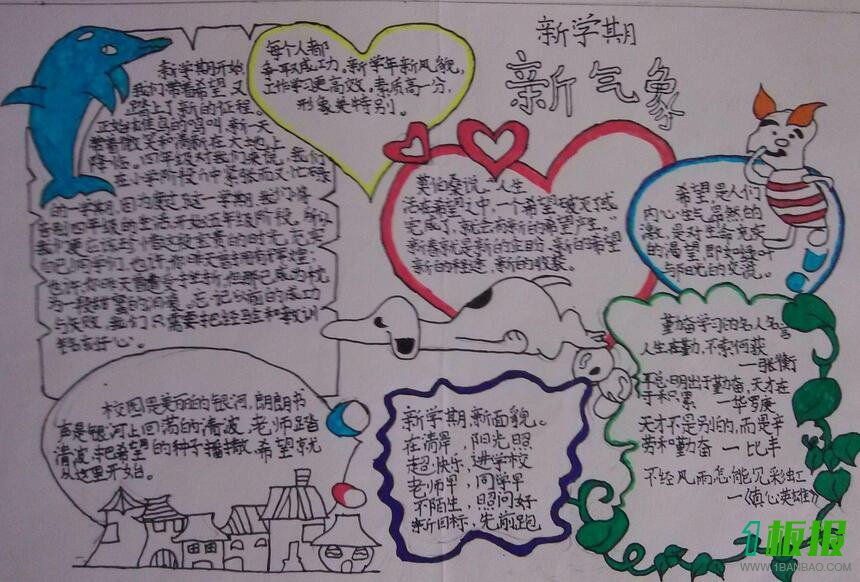 新学期
新气象
新学期开始
我们带着希望又
踏上了新的征程。
新一天
带着微笑和清新在大地上
降临。四年级对我们来说，
在小学阶段
的一学期，因为度过这一学期，我们将
告别四年级的生活，开始五年级阶段，所以
我们更应该珍惜这段宝贵的时光，充实
自己同学们，也许你昨天曾拥有辉煌，
但那已成为枕
为一段甜蜜的回味。忘记以前的成功
与失败，我们只需要把经验和教训
每个人都
争取成功。新学年新风貌，
工作学习更高效。素质高一分，
形象更特别。
莫伯桑说：人生
活在希望之中，一个希望破灭了或
完成了，就会有新的希望产生。"
新春就是新的主日，新的希望
新的程途，新的收获。
希望，是人们
内心生气盎然的
激，是对生命充实
的渴望，即如绿叶
与阳光的交流。
校园是美丽的银河，朗朗书
声是银河上回荡的清波，老师踏
清波，把希望的种子播撒，希望就
从这里开始。
新学期，新面貌。
在清早，阳光照
起快乐，进学校
老师早，同学早
不陌生，照问好
新目标，先前跑
勤奋学习的名人名言
人生在勤，不索何获
—张衡
聪明出于勤奋，天才在
于积累—华罗庚
天才不是别的，而是辛
劳和勤奋—比丰
不经风雨怎能见彩虹
—《真心英雄》
1板报
WWW.1BANBAO.COM